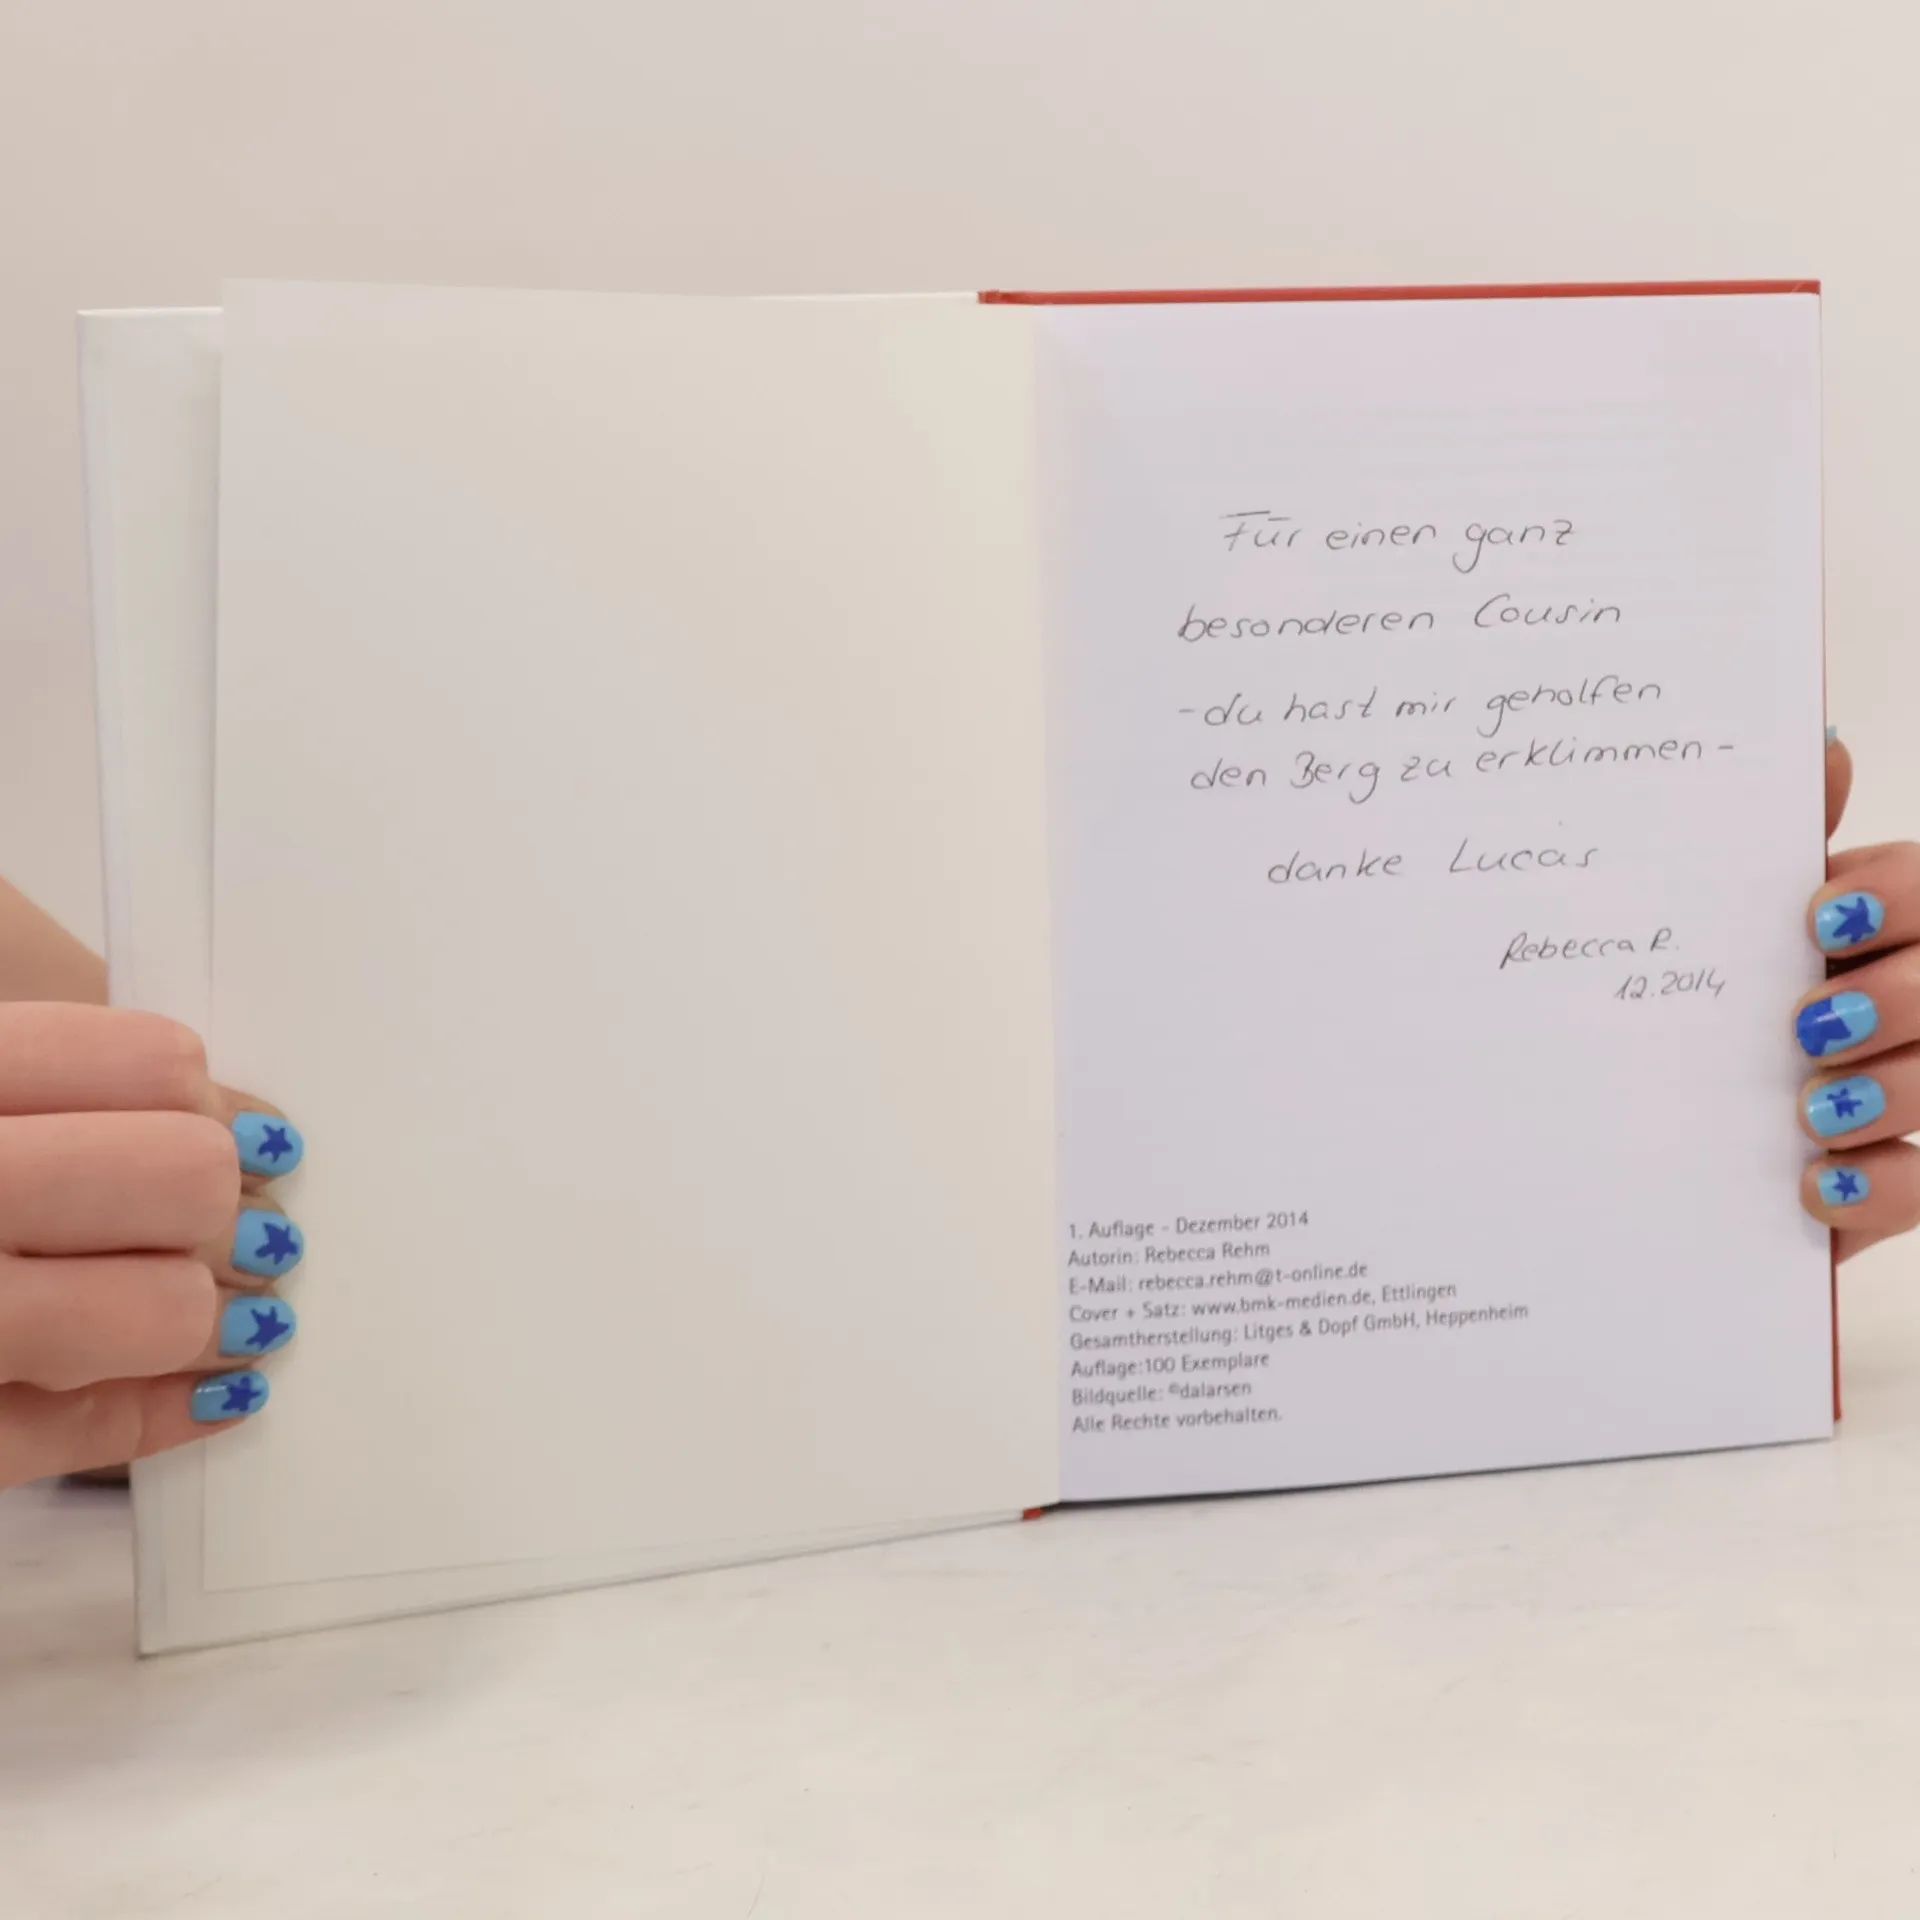 Für einen ganz
besonderen Cousin
- du hast mir geholfen
den Berg zu erklimmen -
danke Lucas
Rebecca R.
12.2014
1. Auflage - Dezember 2014
Autorin: Rebecca Rehm
E-Mail: rebecca.rehm@t-online.de
Cover + Satz: www.bmk-medien.de, Ettlingen
Gesamtherstellung: Litges & Dopf GmbH, Heppenheim
Auflage:100 Exemplare
Bildquelle: ©dalarsen
Alle Rechte vorbehalten.